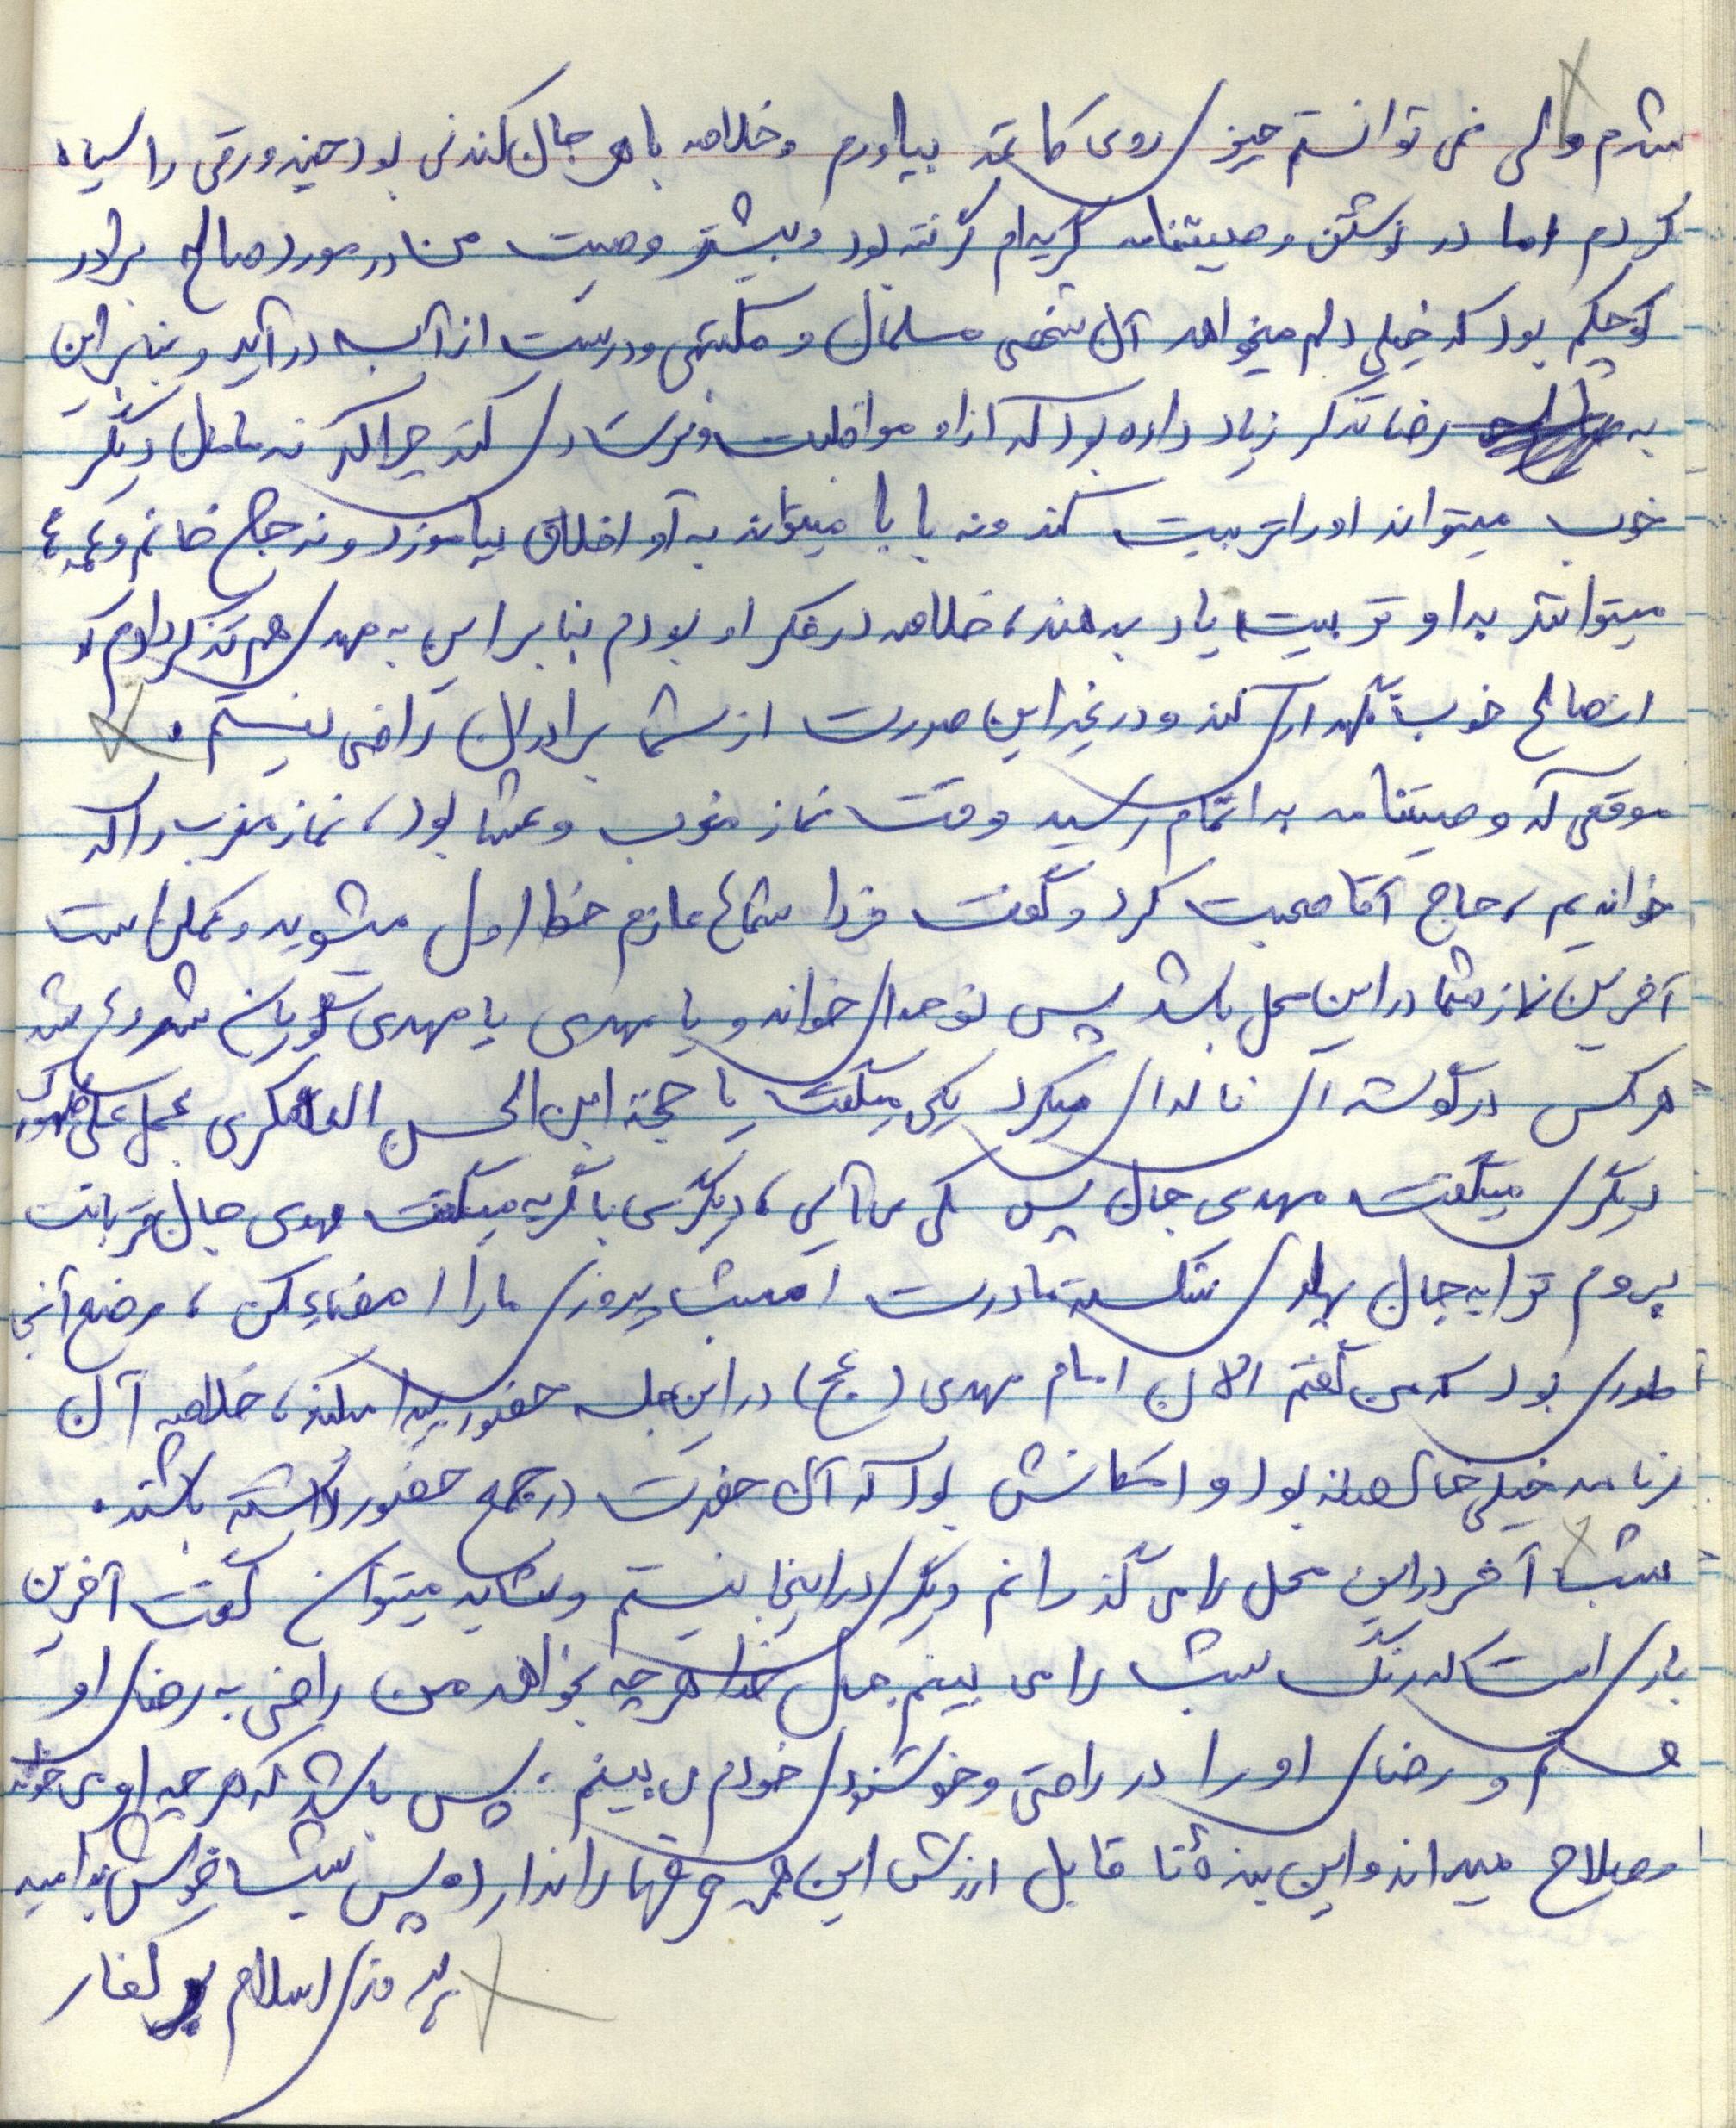 شدم ولی نمی توانستم چیزی روی کاغذ بیاورم و خلاصه با هر جان کندنی بود چند ورقی را سیاه
کردم اما در نوشتن وصیتنامه گریه‌ام گرفته بود و بیشتر وصیت من در مورد صالح برادر
کوچکم بود که خیلی دلم میخواهد آن شخصی مسلمان و مکتبی و درست از آب در آید و بنابراین
به رضا تذکر زیاد داده بودم که از او مواظبت و کند چرا که نه مامان دیگر
خوب میتواند او را تربیت کند و نه بابا میتواند به او اخلاق بیاموزد و نه حاج خانم و عمه ها
میتوانند به او تربیت یاد بدهند، خلاصه در فکر او بودم بنابراین به مهدی هم تذکر دادم که
از صالح خوب نگهداری کند و در غیر این صورت از شما برادران راضی نیستم .
موقعی که وصیتنامه به اتمام رسید وقت نماز مغرب و عشا بود، نماز مغرب را که
خواندیم، حاج آقا صحبت کرد و گفت فردا شماها عازم خط اول میشوید و ممکن است
آخرین نماز شما در این محل باشد پس نوحه‌ای خواند و یا مهدی یا مهدی گویان شروع شد
هر کس در گوشه ای ناله‌ای میکرد یکی میگفت یا حجة ابن الحسن العسکری عجل علی ظهورک
دیگری میگفت مهدی جان پس کی می آئی، دیگری با گریه میگفت مهدی جان قربانت
بروم ترا به جان پهلوی شکسته مادرت امشب پیروزی ما را امضاء کن، وضع آنجا
طوری بود که من گفتم الان امام مهدی (عج) در این جلسه حضور پیدا میکند، خلاصه آن
برنامه خیلی خالصانه بود و امکانش بود که آن حضرت در جمع حضور داشته باشند.
شب آخر در این محل را می گذرانم دیگر در اینجا نیستم و شاید میتوان گفت آخرین
باری است که رنگ شب را می بینم بهرحال خدا هر چه بخواهد من راضی به رضای او
هستم و رضای او را در راحتی و خوشنودی خودم می بینم . پس باشد که هر چه او می خواهد
و صلاح میداند و این بنده نا قابل ارزش این همه حرفها را ندارد، پس شب خوش به امید
پیروزی اسلام بر کفار